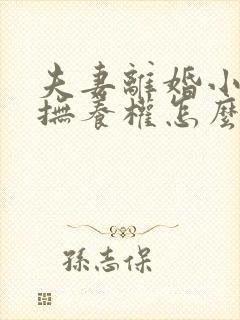 夫妻離婚小
撫養權怎麼
孫志保